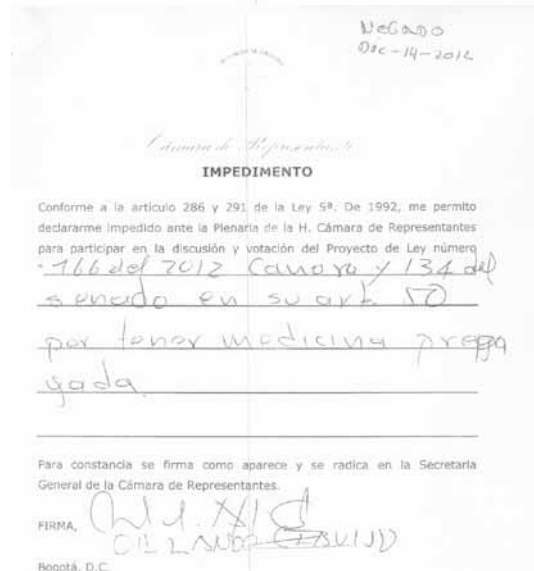 NEGADO
Dic-14-2012
Cámara de Representantes
IMPEDIMENTO
Conforme a la articulo 286 y 291 de la Ley 5ª. De 1992, me permito
declararme impedido ante la Plenaria de la H. Cámara de Representantes
para participar en la discusión y votación del Proyecto de Ley número
166 del 2012 Camara y 134 del
senado en su art. 50
por tener medicina prepa
gada.
Para constancia se firma como aparece y se radica en la Secretaria
General de la Cámara de Representantes.
FIRMA,
Bogotá, D.C.